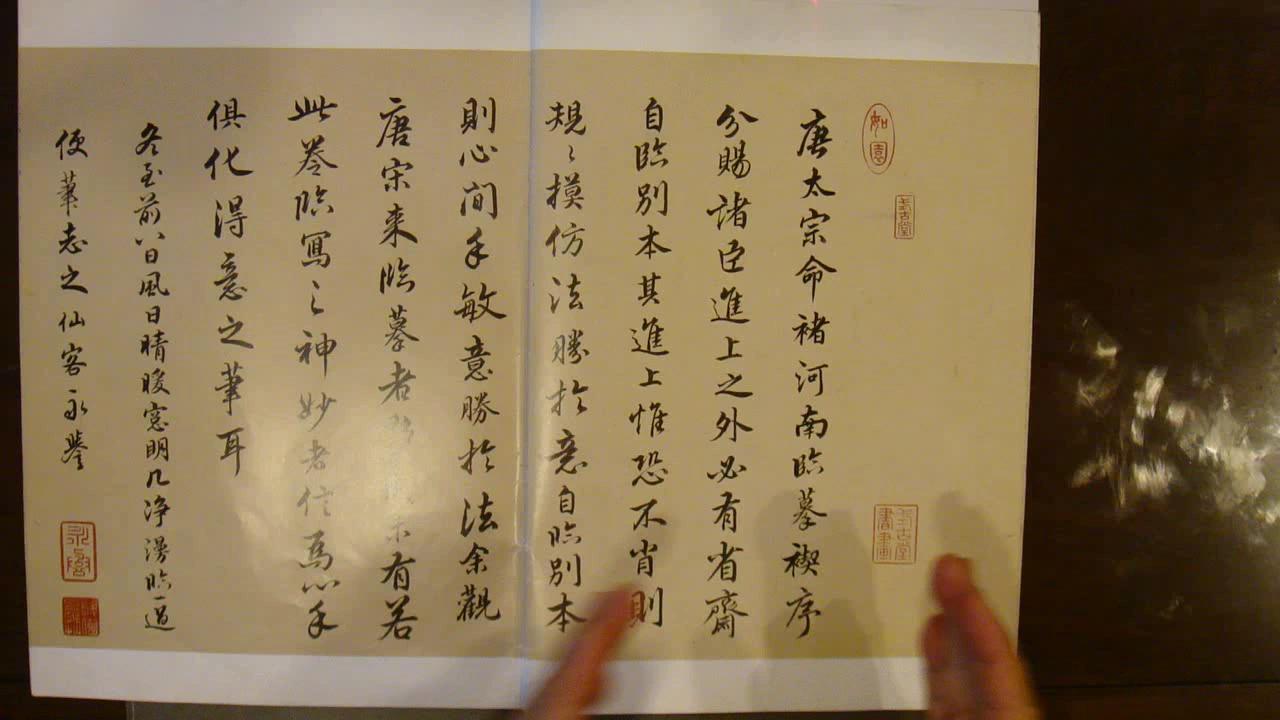 唐太宗命褚河南臨摹禊序
分賜諸臣進上之外必有省齋
自臨別本其進上惟恐不肖則
規〻摸仿法勝於意自臨別本
則心間手敏意勝於法余觀
唐宋來臨摹者
未有若
此卷臨寫〻神妙者信為心手
俱化得意之筆耳
冬至前八日風日晴暖窓明几净漫臨一過
便筆志之仙客永譽
如園
考古堂
書畫